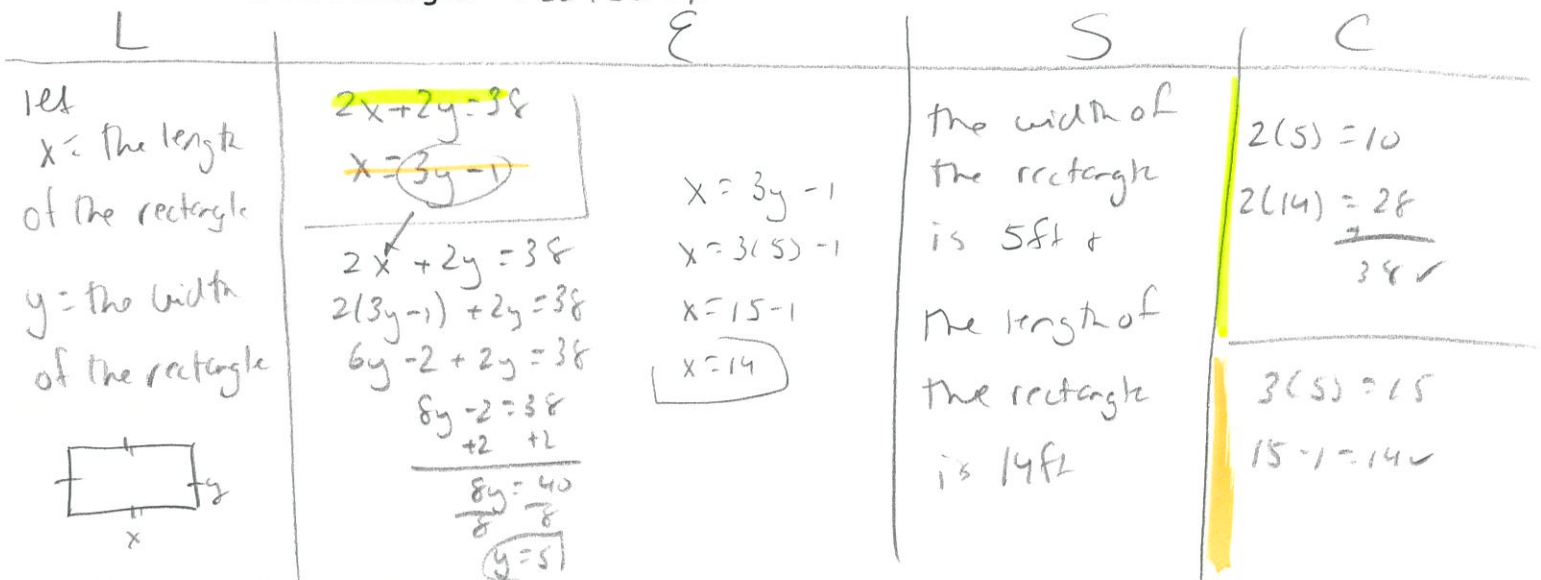 L
let
x = the length
of the rectangle
y = the width
of the rectangle
y
x
E
2x+2y=38
x=3y-1
2x+2y=38
2(3y-1)+2y=38
6y-2+2y=38
8y-2=38
+2 +2
8y=40
8 8
y=5
x=3y-1
x=3(5)-1
x=15-1
x=14
S
the width of
the rectangle
is 5ft +
the length of
the rectangle
is 14ft
C
2(5)=10
2(14)=28
38✓
3(5)=15
15-1=14✓